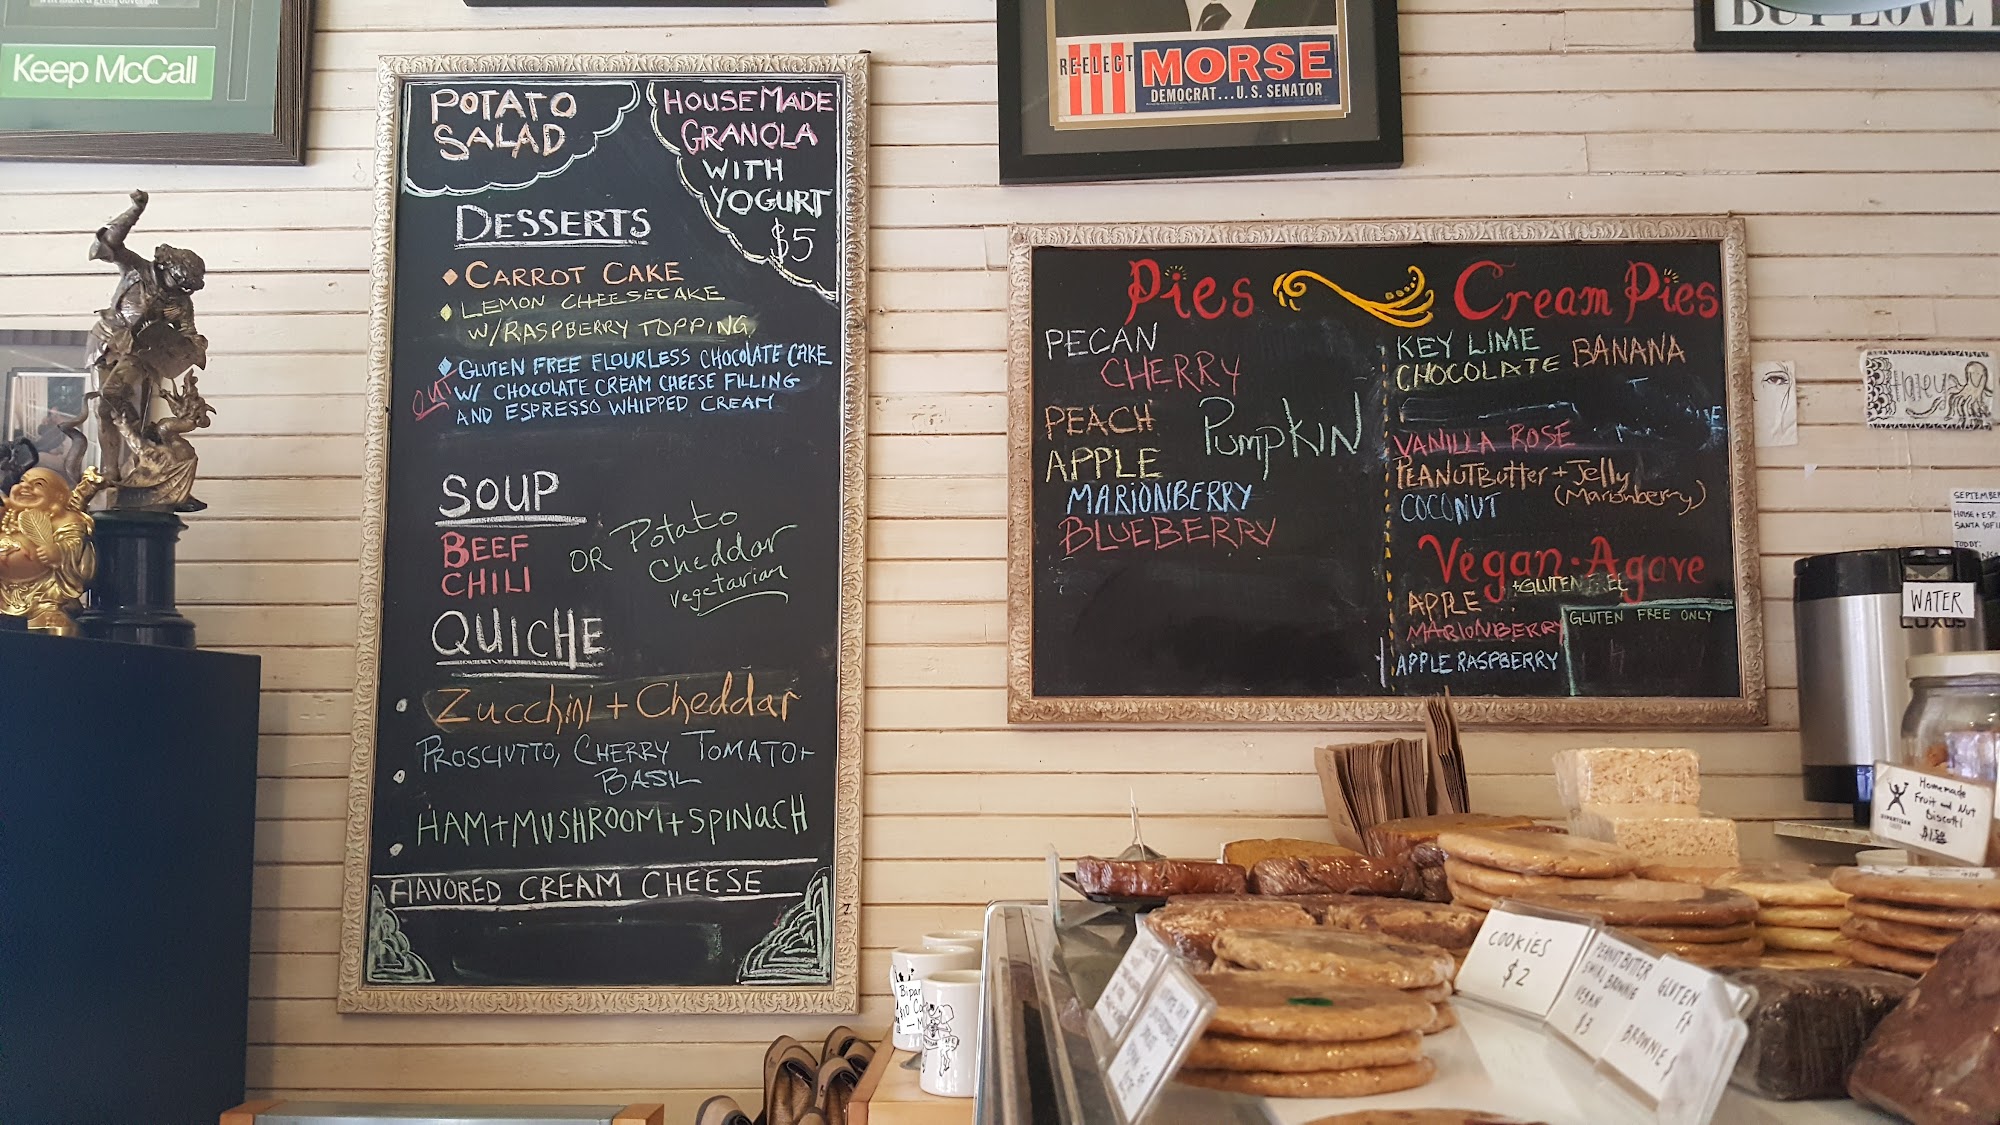 Keep McCall
RE-ELECT
MORSE
DEMOCRAT...U.S. SENATOR
POTATO
SALAD
HOUSEMADE
GRANOLA
WITH
YOGURT
$5
DESSERTS
CARROT CAKE
LEMON CHEESECAKE
W/RASPBERRY TOPPING
OUT
GLUTEN FREE FLOURLESS CHOCOLATE CAKE
W/ CHOCOLATE CREAM CHEESE FILLING
AND ESPRESSO WHIPPED CREAM
SOUP
BEEF
CHILI
OR
Potato
Cheddar
vegetarian
QUICHE
Zucchini + Cheddar
PROSCIUTTO, CHERRY TOMATO +
BASIL
HAM + MUSHROOM + SPINACH
FLAVORED CREAM CHEESE
Pies
PECAN
CHERRY
PEACH
APPLE
PUMPKIN
MARIONBERRY
BLUEBERRY
Cream Pies
KEY LIME
CHOCOLATE
BANANA
VANILLA ROSE
PEANUTBUTTER + JELLY
(Marionberry)
COCONUT
Vegan · Agave
+GLUTEN FREE
APPLE
MARIONBERRY
APPLE RASPBERRY
GLUTEN FREE ONLY
SEPTEMBER
WATER
Homemade
Fruit and Nut
Biscotti
COOKIES
$2
PEANUTBUTTER
SWIRL BROWNIE
VEGAN
$3
GLUTEN
BROWNIE